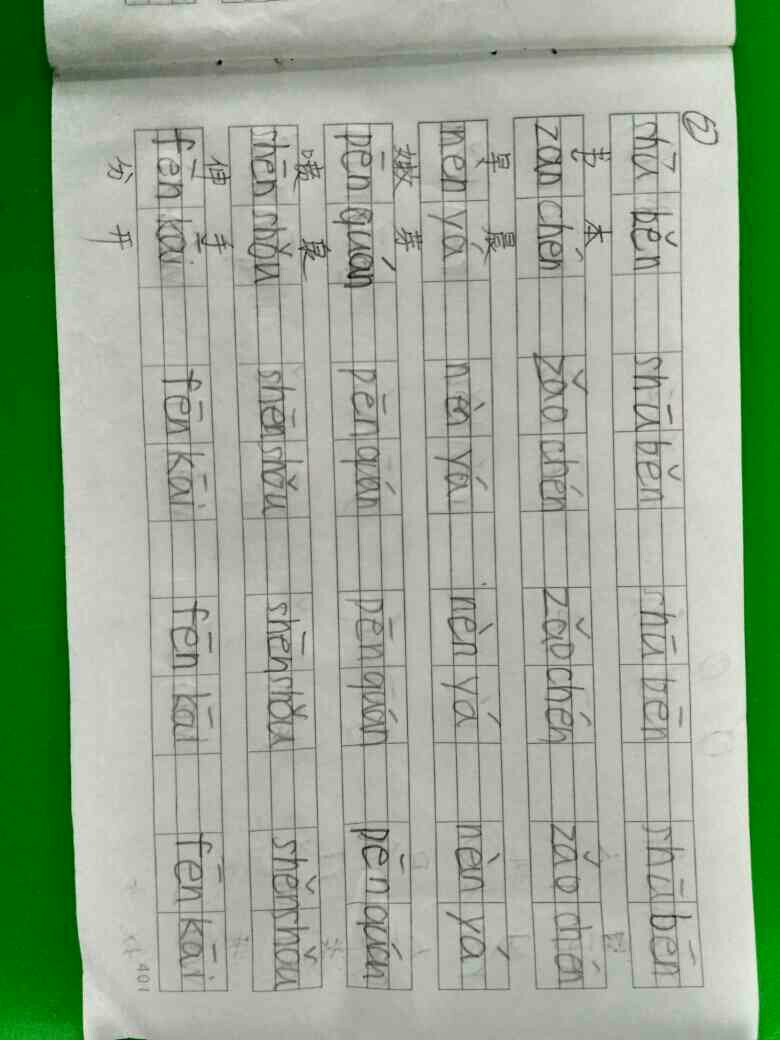 2
shū běn shū běn shū bēn shū bēn
书 本
zao chén zǎo chén zǎo chén zǎo chén
早 晨
nen yá nèn yá nèn yá nèn yá
嫩 芽
pēn quán pēn quán pēn quán pēn quán
喷 泉
shēn shǒu shēn shǒu shēn shǒu shěn shǒu
伸 手
fēn kāi fēn kāi fēn kāi fēn kāi
分 开
401